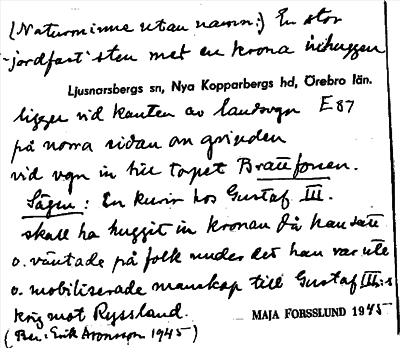 (Naturminne utan namn:) En stor
jordfast sten med en krona inhuggen
Ljusnarsbergs sn, Nya Kopparbergs hd, Örebro län.
ligger vid kanten av landsvägen E 87
på norra sidan om grinden
vid vgn in till torpet Brattforsen.
Sägen: En kurir hos Gustaf III.
skall ha huggit in kronan då han satt
o. väntade på folk under det han var ute
o. mobiliserade manskap till Gustaf III:s
krig mot Ryssland.
MAJA FORSSLUND 1945
(Ber: Erik Aronsson 1945)